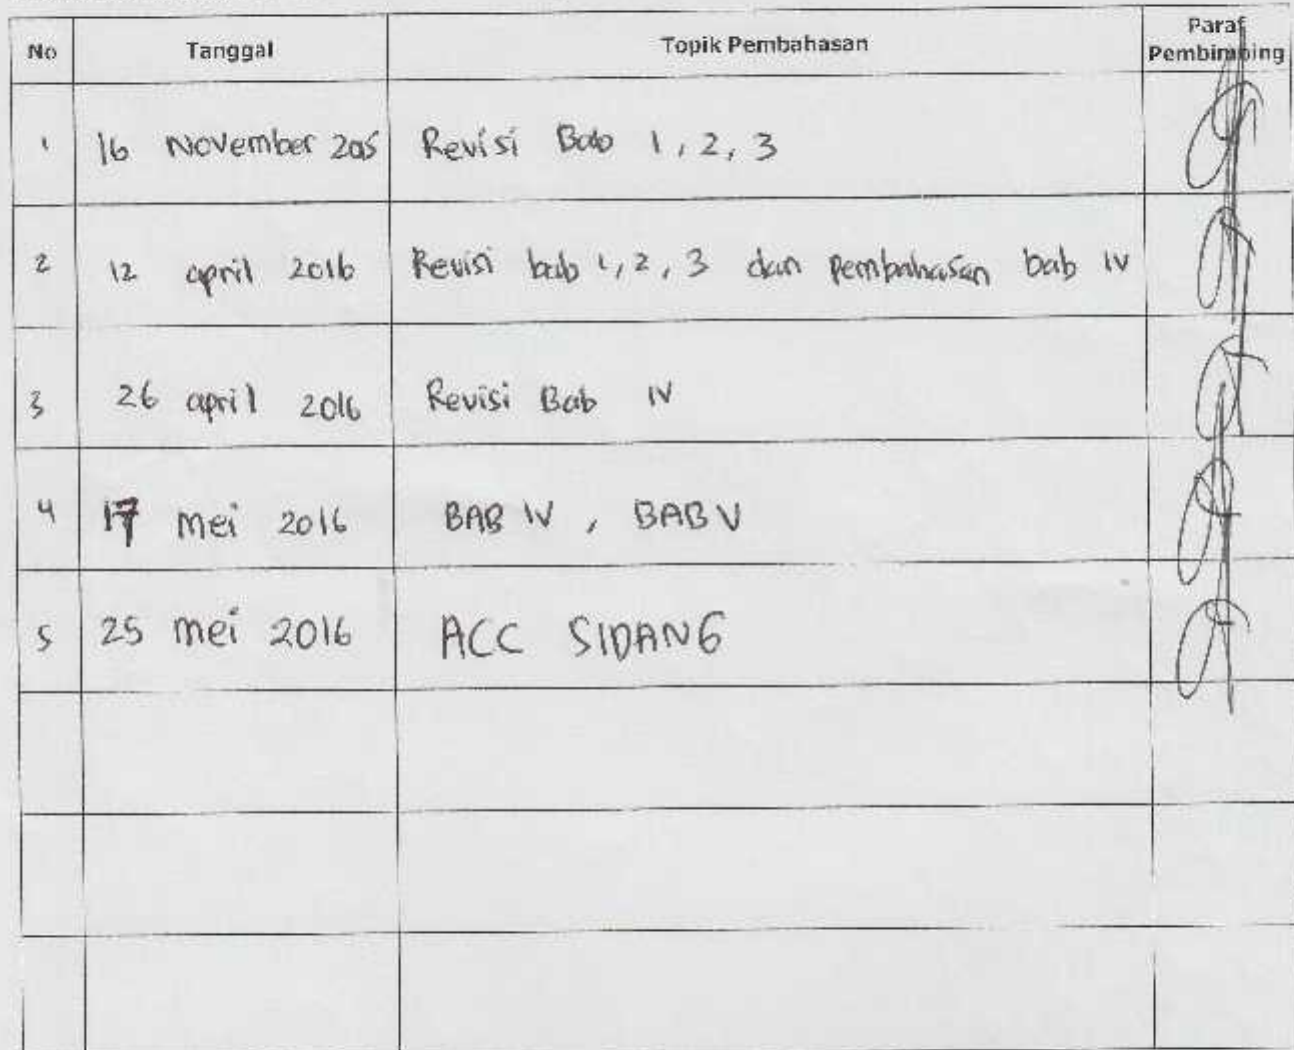 No Tanggal Topik Pembahasan Paraf Pembimbing
1 16 November 2015 Revisi Bab 1, 2, 3
2 12 april 2016 Revisi bab 1, 2, 3 dan pembahasan bab IV
3 26 april 2016 Revisi Bab IV
4 17 mei 2016 BAB IV, BAB V
5 25 mei 2016 ACC SIDANG